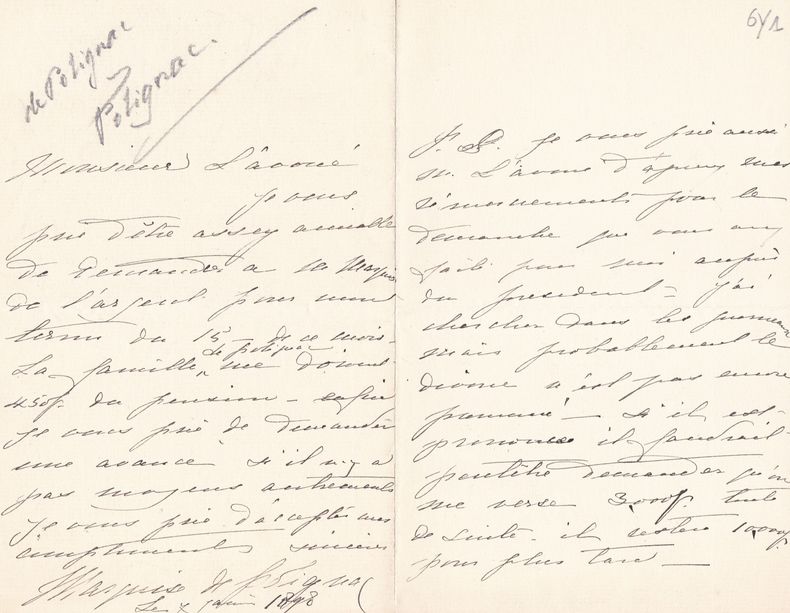 de Polignac
Polignac.
Monsieur L'avoué
je vous
prie d'être assez aimable
de demander a M. Marquis
de l'argent pour mon
terme du 15 - de ce mois -
La famille de polignac me doivent
450f. du pension - enfin
je vous prie de demander
une avance s'il n'y a
pas moyens autrement
je vous prie d'accepter mes
compliments sincères
Marquise de Polignac
Le janvier 1898
6/1
P. S. je vous prie aussi
M. L'avoué d'apres mes
rémerciements pour le
demarche que vous avez
fait pour moi aupres
du president - j'ai
chercher dans les journeaux
mais probablement le
divorce n'est pas encore
prononcé - s'il est
prononcé il faudrait
peutêtre demander qu'on
me verse 3,000f. toute
de suite. il restera 1000f.
pour plus tard -